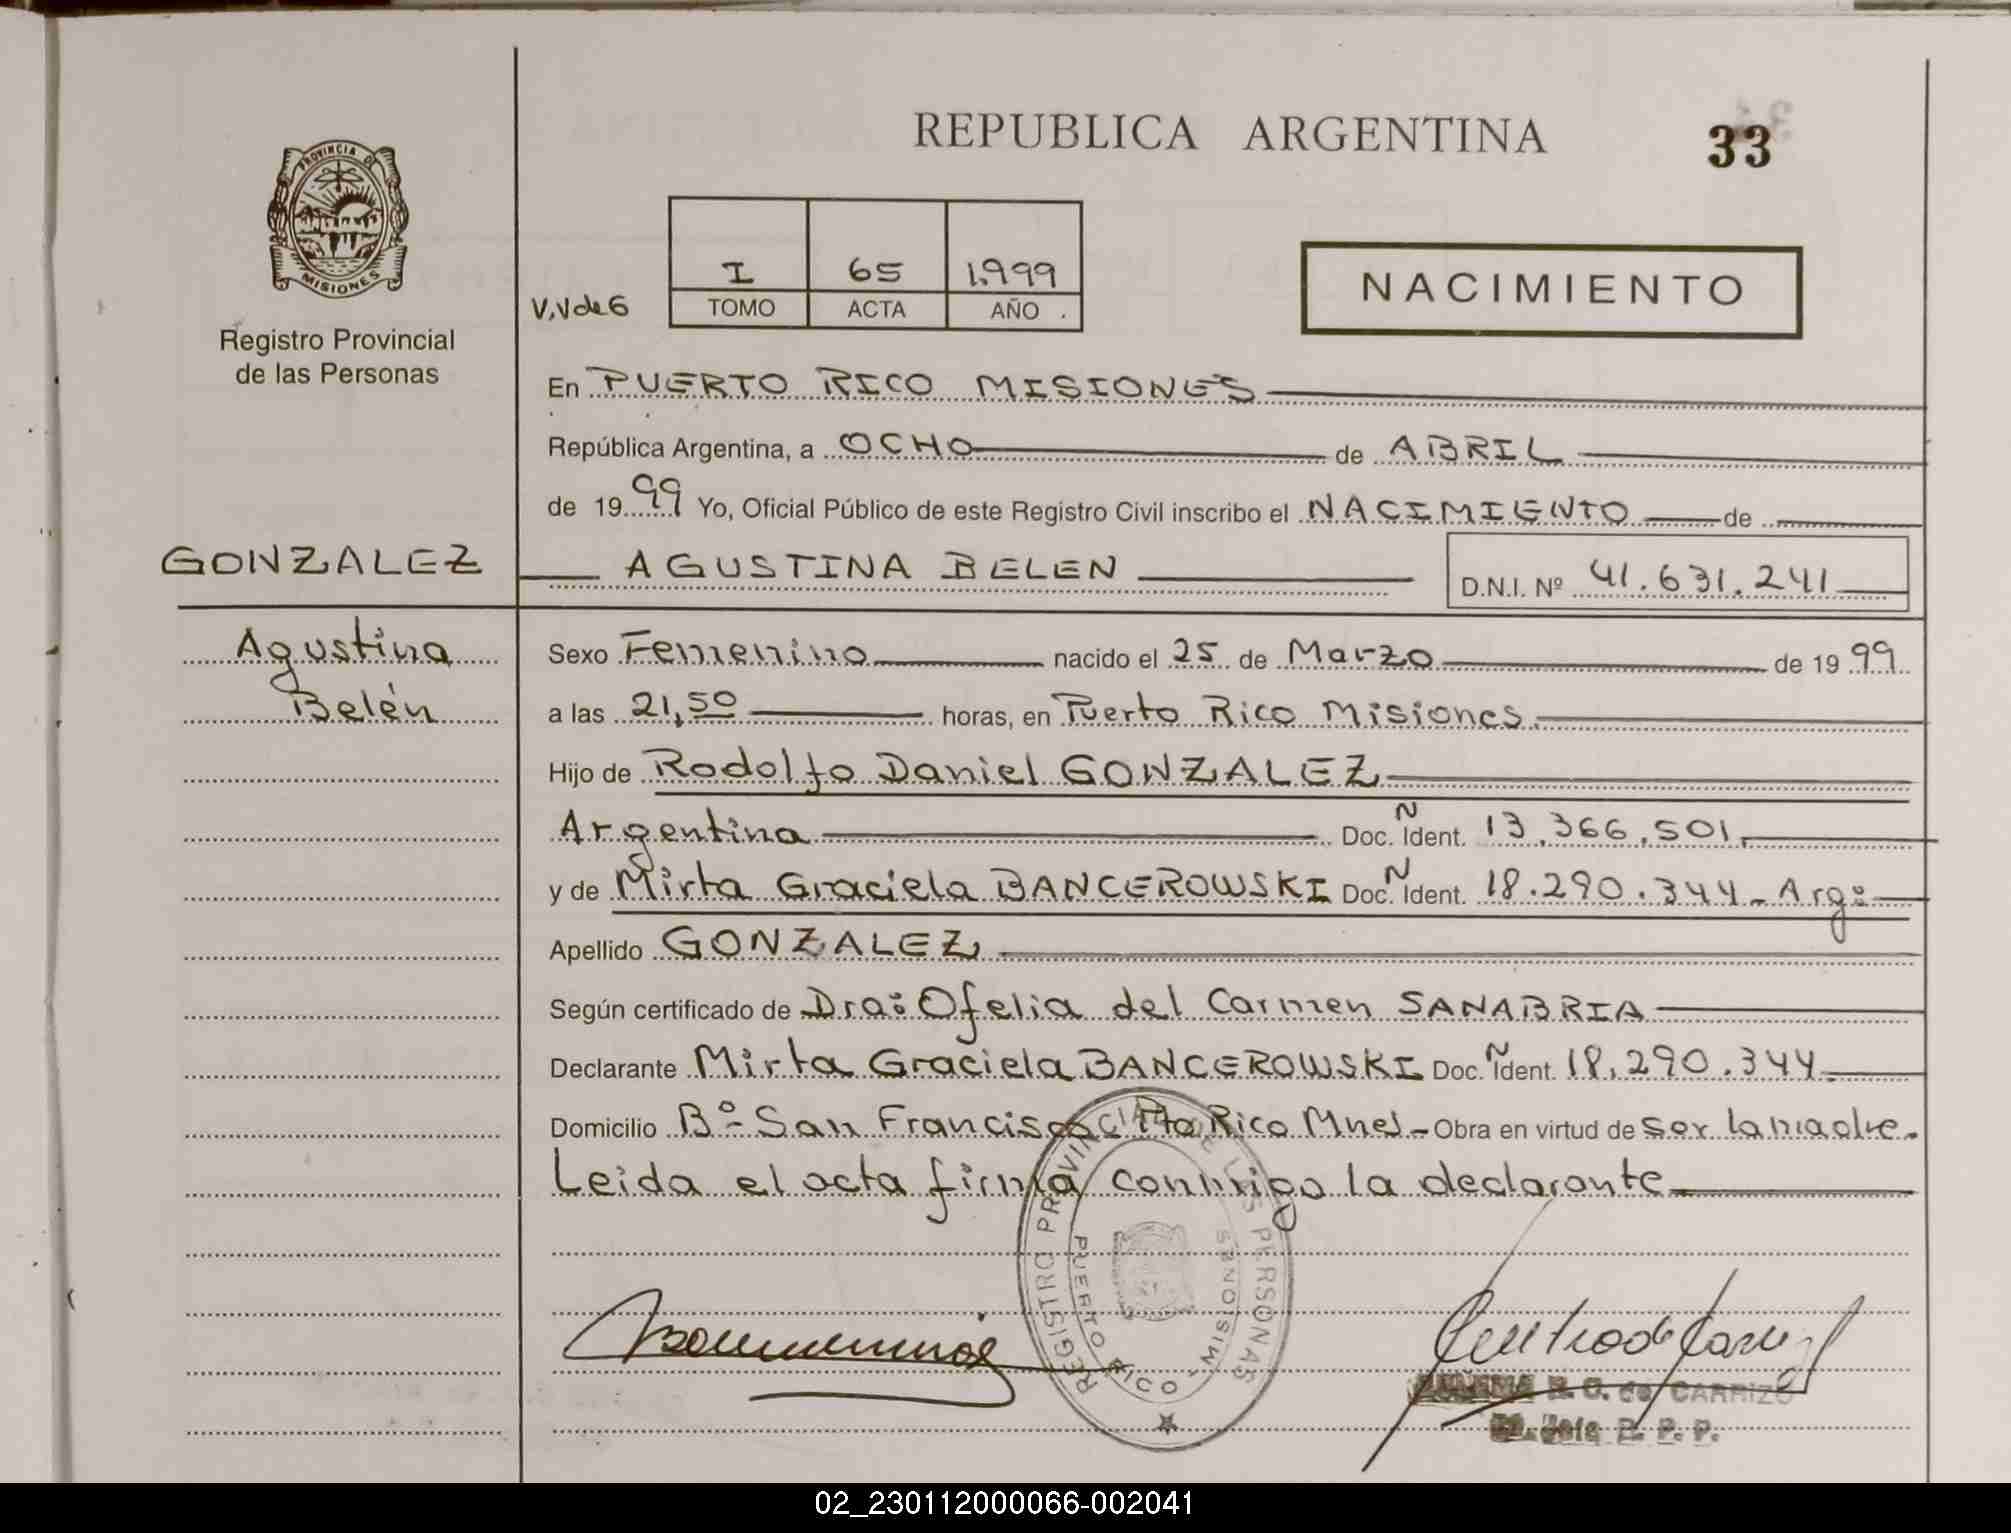 REPUBLICA ARGENTINA
33
PROVINCIA DE MISIONES
Registro Provincial
de las Personas
V.V de 6
I 65 1.999
TOMO ACTA AÑO
NACIMIENTO
En PUERTO RICO MISIONES
República Argentina, a OCHO de ABRIL
de 19 99 Yo, Oficial Público de este Registro Civil inscribo el NACIMIENTO de
GONZALEZ
AGUSTINA BELEN D.N.I. Nº 41.631.241
Agustina
Belén
Sexo Femenino nacido el 25 de Marzo de 19 99
a las 21,50 horas, en Puerto Rico Misiones
Hijo de Rodolfo Daniel GONZALEZ
Argentina Doc. N Ident. 13.366.501
y de Mirta Graciela BANCEROWSKI Doc. N Ident. 18.290.344 - Arg:
Apellido GONZALEZ
Según certificado de Dra: Ofelia del Carmen SANABRIA
Declarante Mirta Graciela BANCEROWSKI Doc. N Ident. 18.290.344
Domicilio Bº San Francisco Pto Rico Mnes - Obra en virtud de ser la madre.
Leida el acta firma conmigo la declarante
REGISTRO PROVINCIAL DE LAS PERSONAS
PUERTO RICO - MISIONES
R. G. de CARRIZO
Jefe R. P. P.
02_230112000066-002041